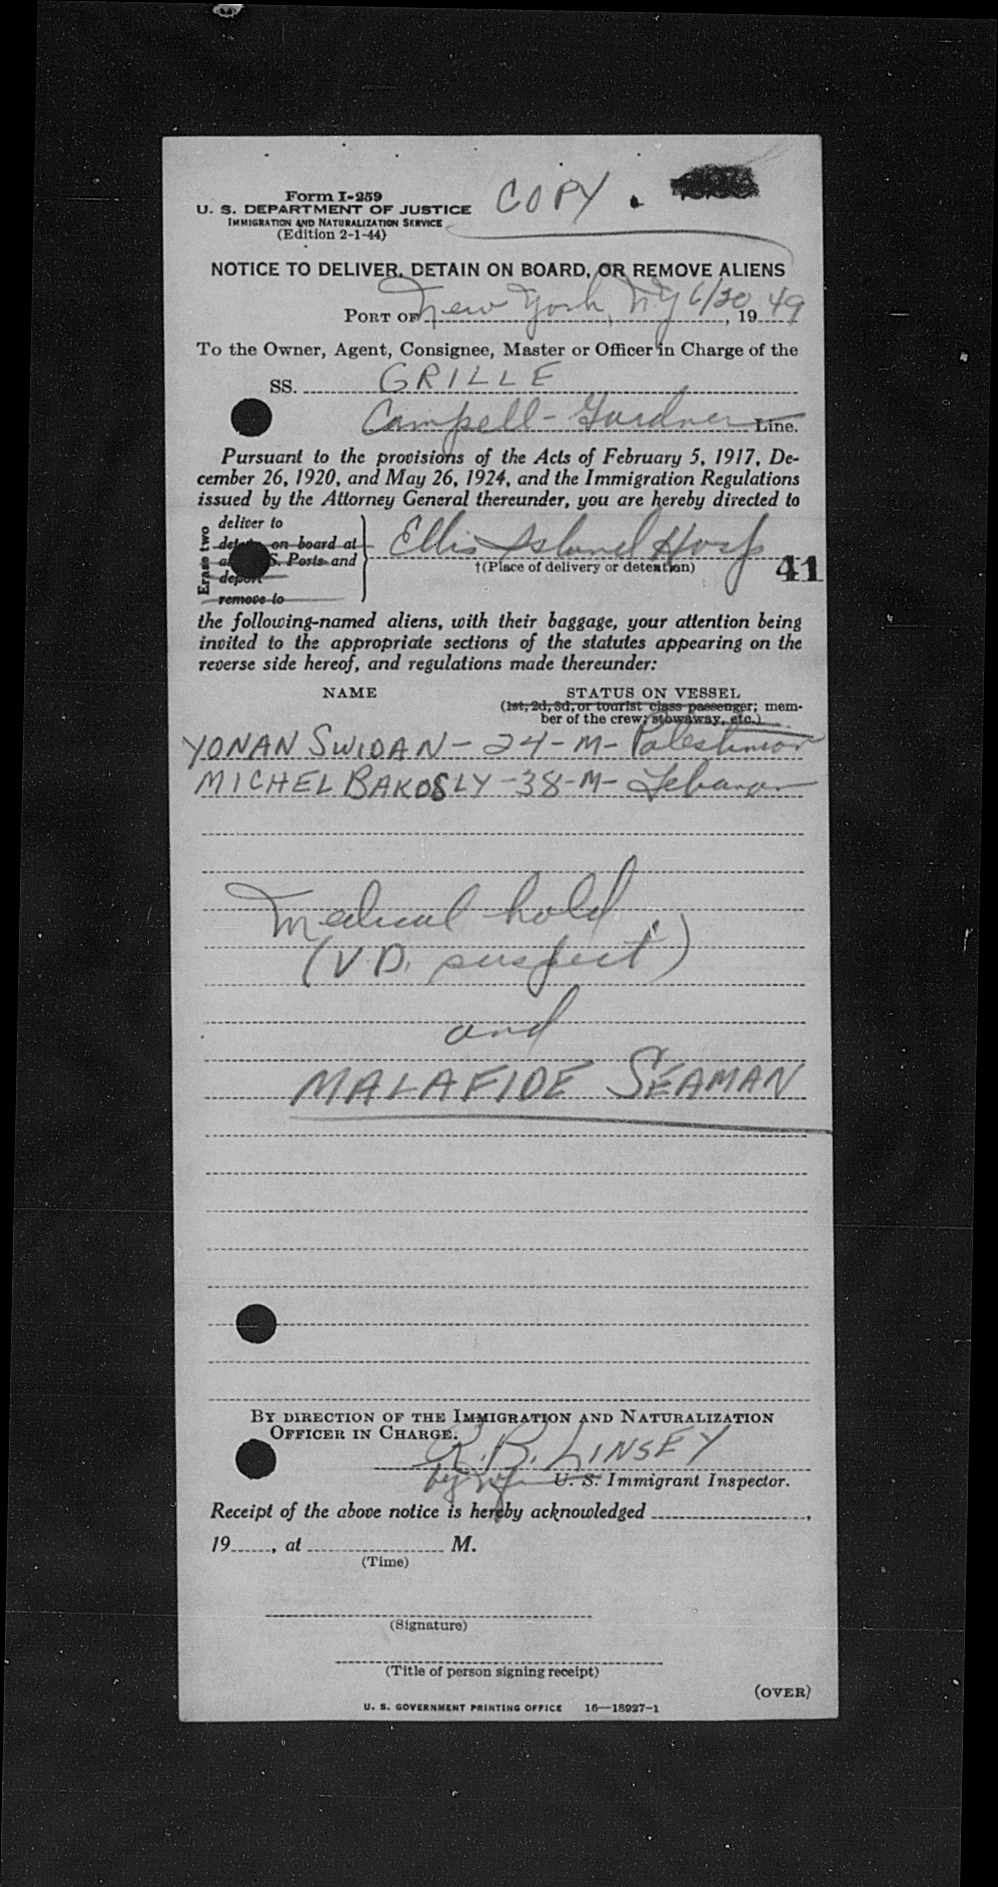 COPY
Form I-259
U. S. DEPARTMENT OF JUSTICE
IMMIGRATION AND NATURALIZATION SERVICE
(Edition 2-1-44)
NOTICE TO DELIVER, DETAIN ON BOARD, OR REMOVE ALIENS
PORT OF New York, NY 6/20, 1949
To the Owner, Agent, Consignee, Master or Officer in Charge of the
SS. GRILLE
Campell-Gardner Line.
Pursuant to the provisions of the Acts of February 5, 1917, De-
cember 26, 1920, and May 26, 1924, and the Immigration Regulations
issued by the Attorney General thereunder, you are hereby directed to
Erase two
deliver to
on board at
S. Ports and
deport
remove to
Ellis Island Hosp
†(Place of delivery or detention)
41
the following-named aliens, with their baggage, your attention being
invited to the appropriate sections of the statutes appearing on the
reverse side hereof, and regulations made thereunder:
NAME STATUS ON VESSEL
(1st, 2d, 3d, or tourist class passenger; mem-
ber of the crew; stowaway, etc.)
YONAN SWIDAN - 24 - M - Palestinian
MICHEL BAKOSLY - 38 - M - Lebanon
Medical hold
(V.D. suspect)
and
MALAFIDE SEAMAN
BY DIRECTION OF THE IMMIGRATION AND NATURALIZATION
OFFICER IN CHARGE.
R. R. LINSEY
by U. S. Immigrant Inspector.
Receipt of the above notice is hereby acknowledged ,
19 , at M.
(Time)
(Signature)
(Title of person signing receipt)
(OVER)
U. S. GOVERNMENT PRINTING OFFICE 16—18927-1